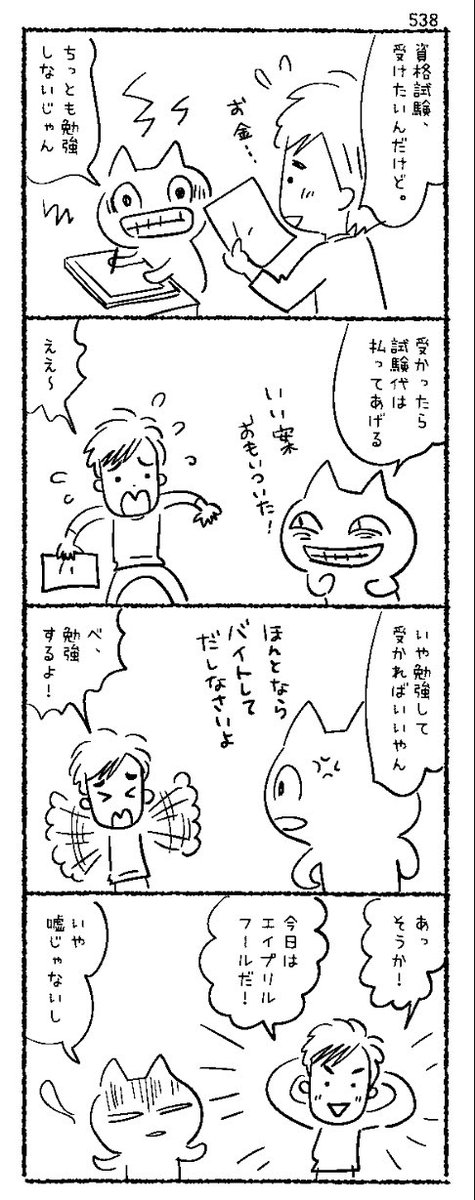 538
資格試験、
受けたいんだけど。
お金…
ちっとも勉強
しないじゃん
受かったら
試験代は
払ってあげる
いい案
おもいついた！
ええ〜
いや勉強して
受かればいいやん
ほんとなら
バイトして
だしなさいよ
べ、
勉強
するよ！
あっ
そうか！
今日は
エイプリル
フールだ！
いや
嘘じゃないし